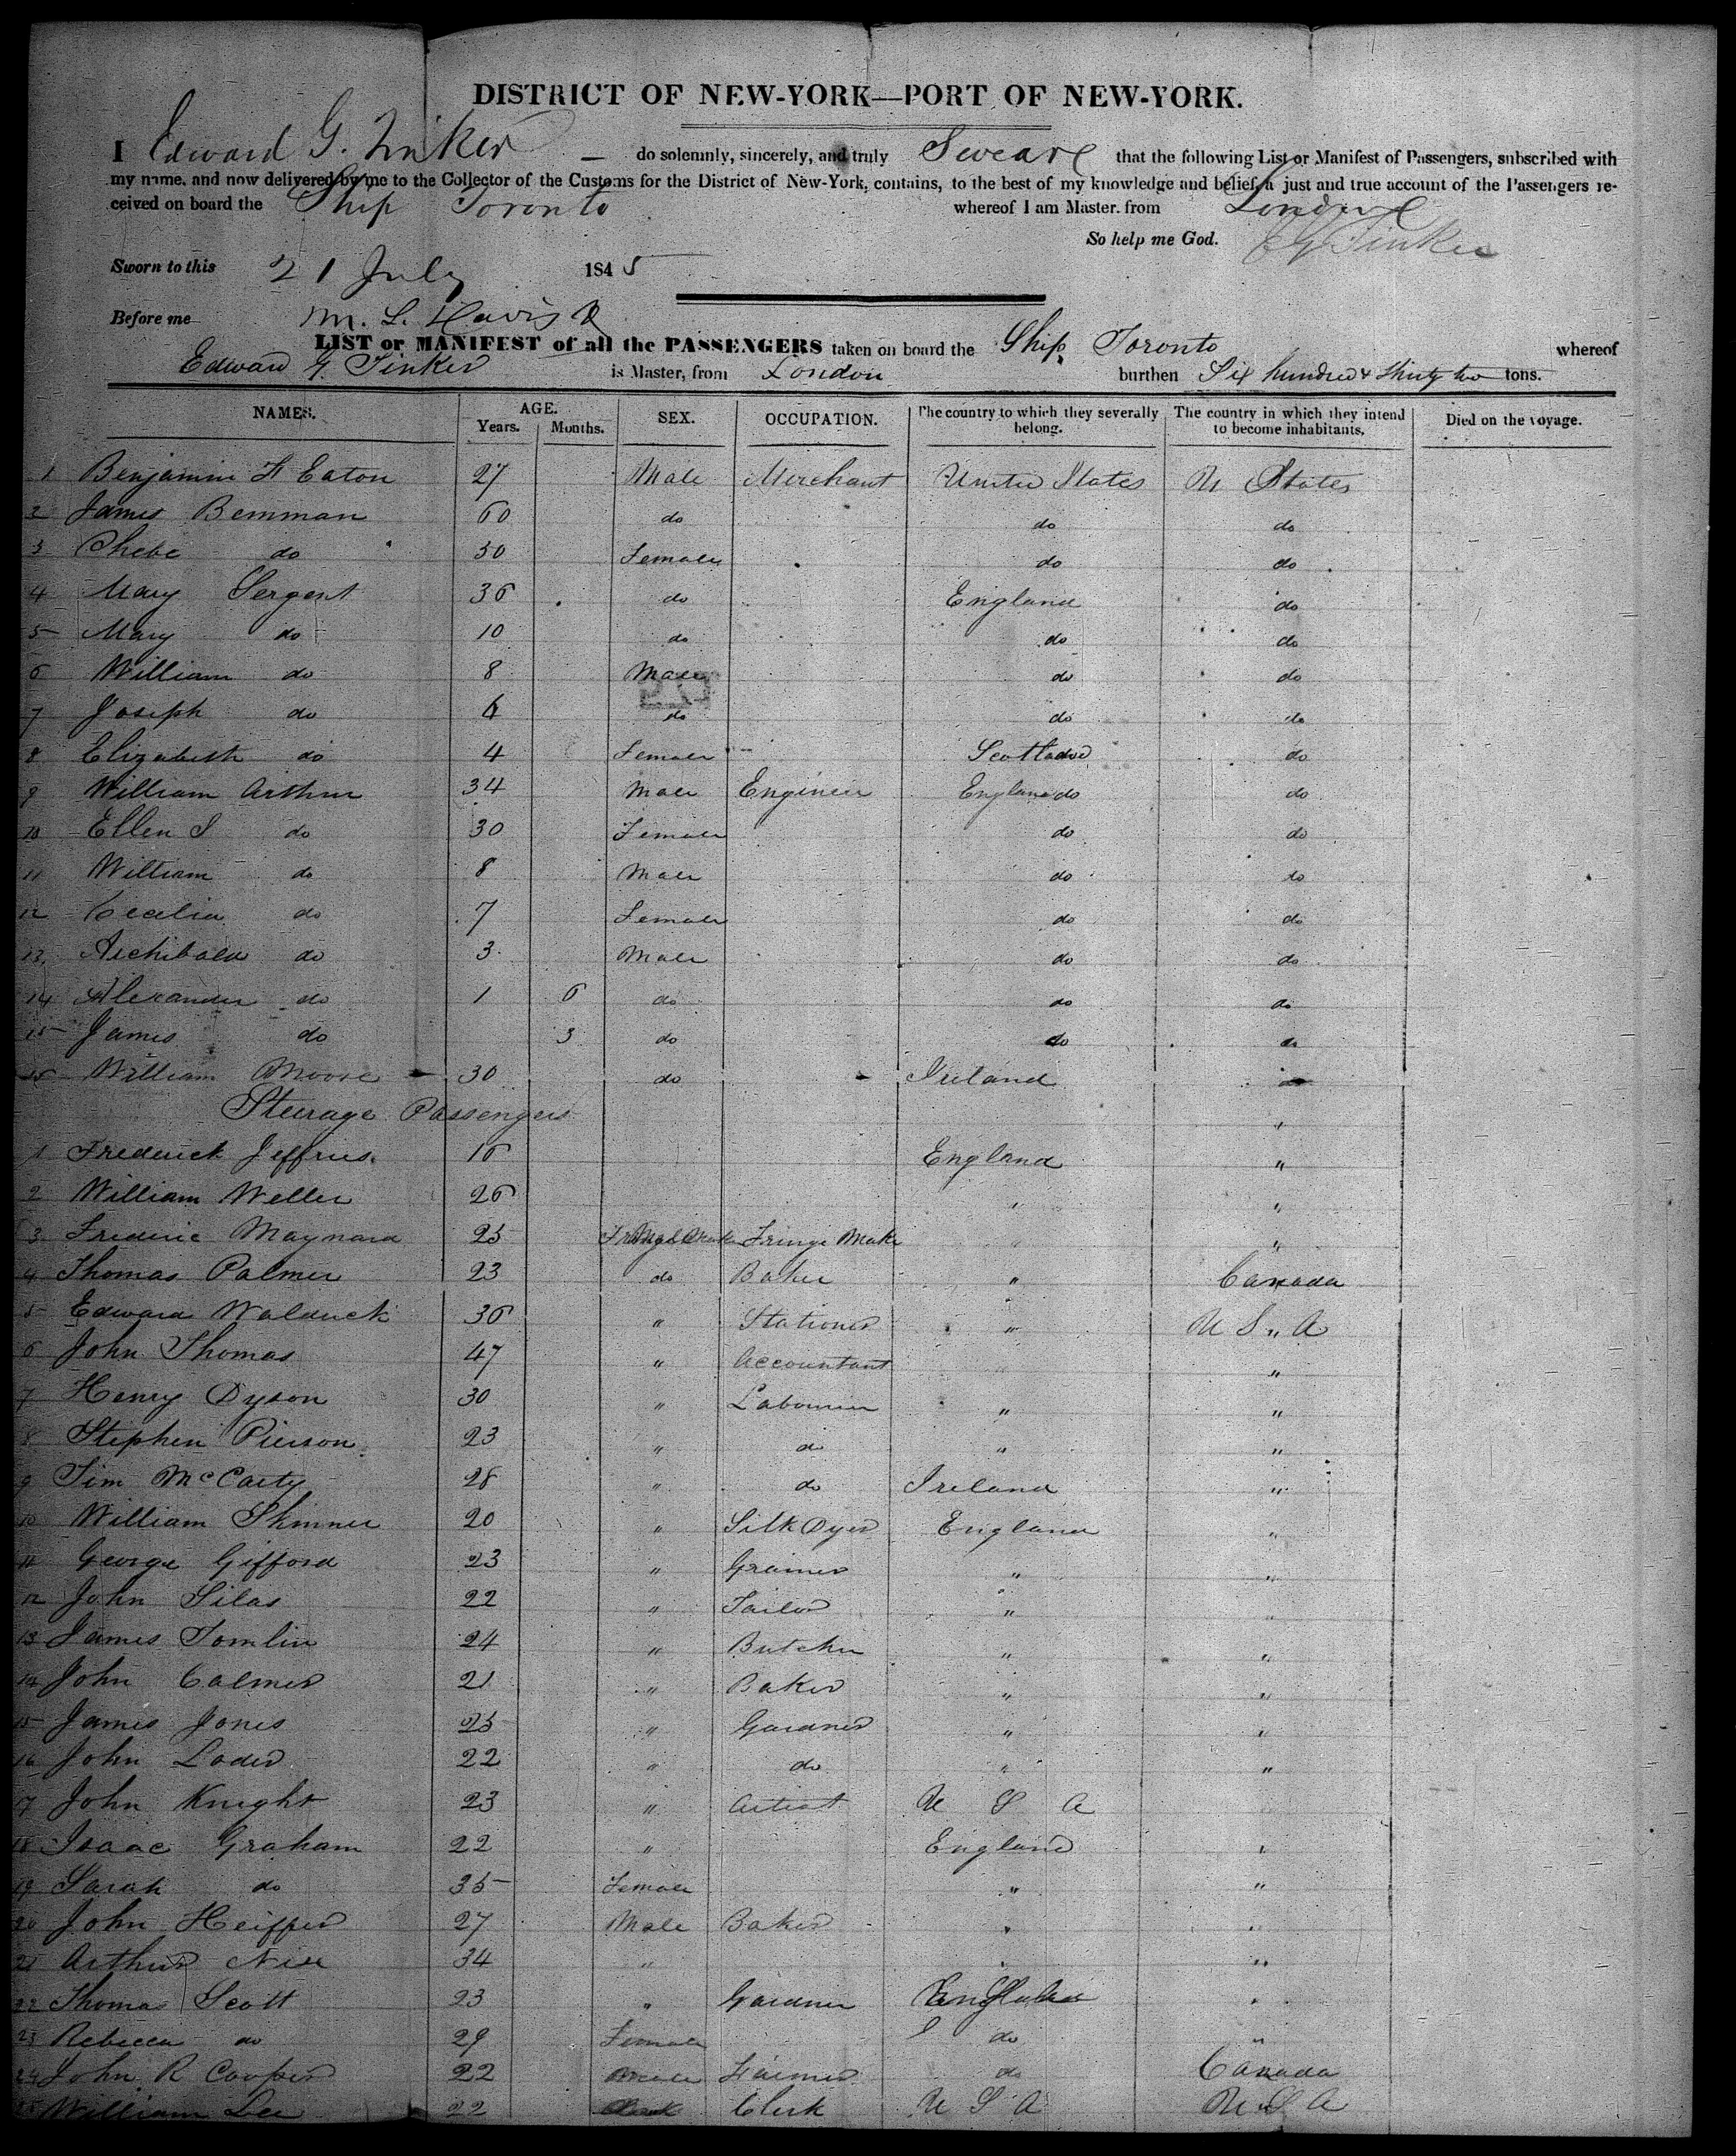 DISTRICT OF NEW-YORK—PORT OF NEW-YORK.
I Edward G. Tinker — do solemnly, sincerely, and truly Swear that the following List or Manifest of Passengers, subscribed with
my name, and now delivered by me to the Collector of the Customs for the District of New-York, contains, to the best of my knowledge and belief, a just and true account of the Passengers re-
ceived on board the Ship Toronto whereof I am Master, from London
So help me God. E G Tinker
Sworn to this 21 July 1845
Before me M. L. Davis
LIST or MANIFEST of all the PASSENGERS taken on board the Ship Toronto whereof
Edward G. Tinker is Master, from London burthen Six hundred & thirty two tons.
NAMES. AGE. Years. Months. SEX. OCCUPATION. The country to which they severally belong. The country in which they intend to become inhabitants. Died on the voyage.
1 Benjamin F Eaton 27 Male Merchant United States U States
2 James Bemman 60 do do do
3 Phebe do 50 Female do do
4 Mary Sergent 36 do England do
5 Mary do 10 do do do
6 William do 8 Male do do
7 Joseph do 6 do do do
8 Elizabeth do 4 Female Scotland do
9 William Arthur 34 Male Engineer England do do
10 Ellen S do 30 Female do do
11 William do 8 Male do do
12 Cecelia do 7 Female do do
13 Archibald do 3 Male do do
14 Alexander do 1 6 do do do
15 James do 3 do do do
16 William Moore 30 do Ireland do
Steerage Passengers "
1 Frederick Jeffries 16 England "
2 William Weller 26 " "
3 Frederic Maynard 25 Male Fringe Make " "
4 Thomas Palmer 23 do Baker " Canada
5 Edward Walduck 36 " Stationer " U S " A
6 John Thomas 47 " Accountant "
7 Henry Dyson 30 " Labourer " "
8 Stephen Pierson 23 " do " "
9 Tim McCarty 28 " do Ireland "
10 William Skinner 20 " Silk Dyer England "
11 George Gifford 23 " Grainer " "
12 John Silas 22 " Tailor " "
13 James Tomlin 24 " Butcher " "
14 John Calmer 21 " Baker " "
15 James Jones 25 " Gardner " "
16 John Loder 22 " do " "
17 John Knight 23 " Artist U S A
18 Isaac Graham 22 " England "
19 Sarah do 35 Female " "
20 John Heiffer 27 Male Baker " "
21 Arthur 34 " " "
22 Thomas Scott 23 " Gardner England "
23 Rebecca do 29 Female do "
24 John R Cooper 22 Male Farmer do Canada
25 William Lee 22 Clerk U S A U S A